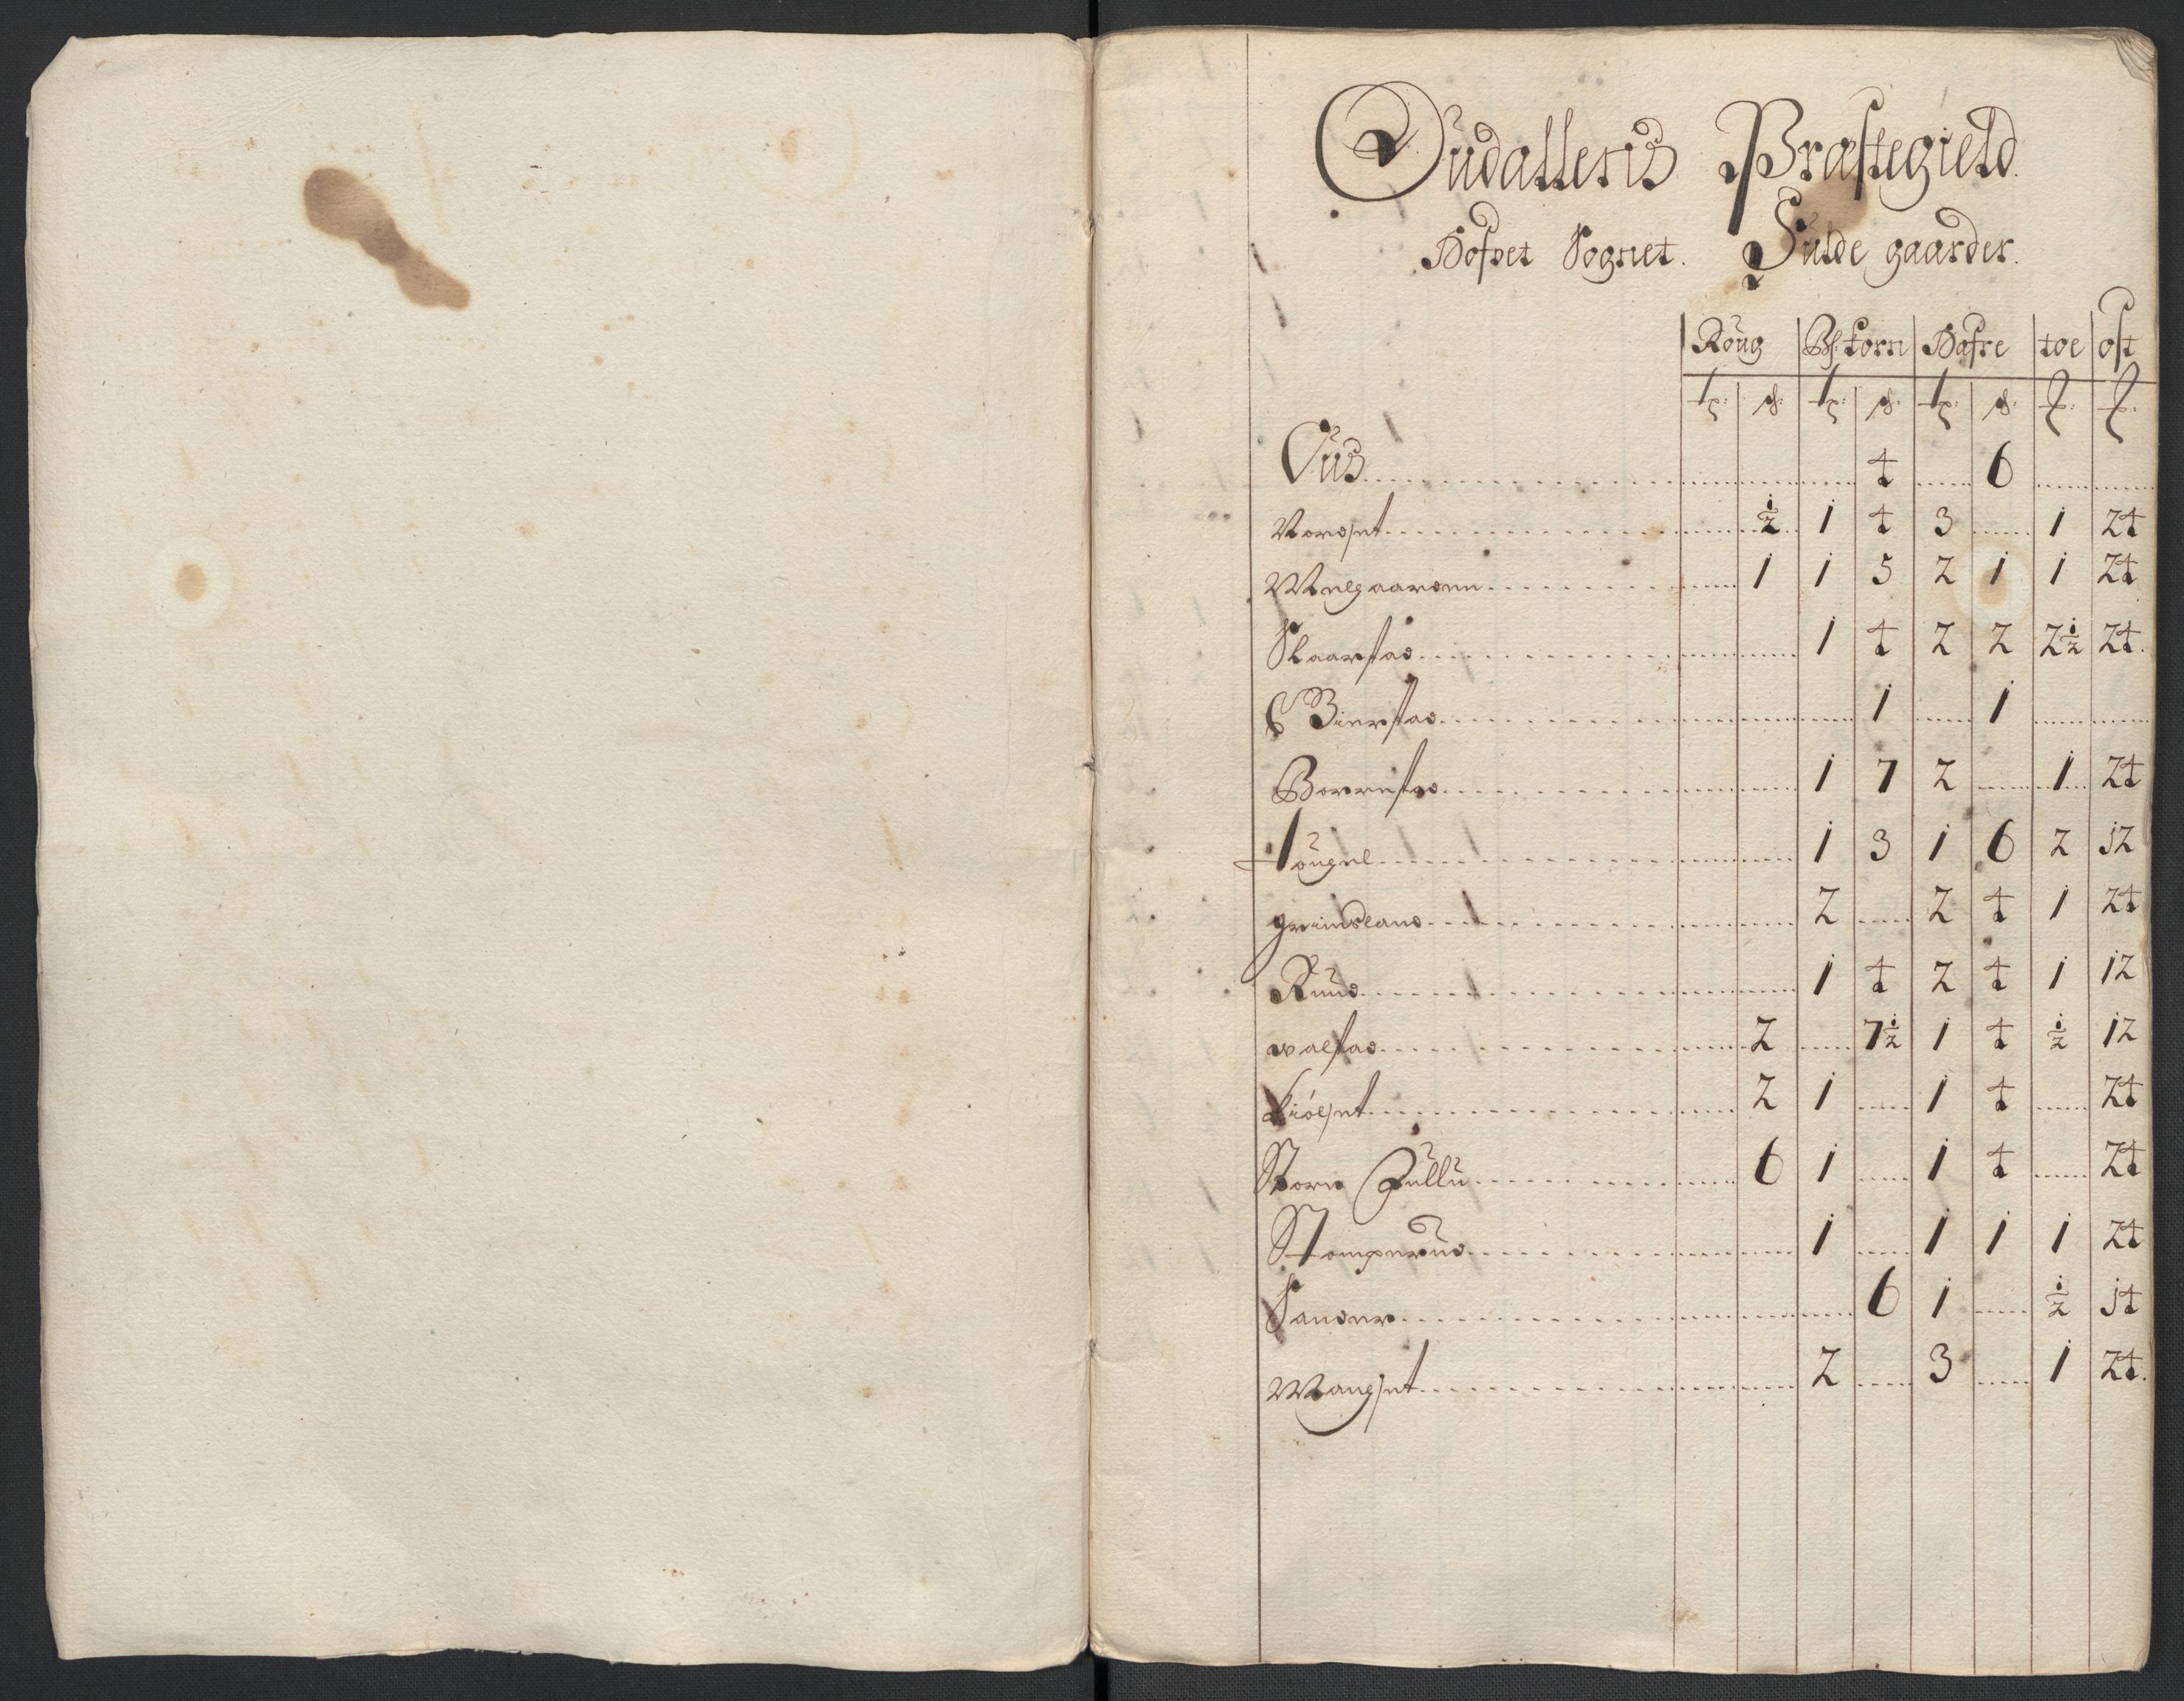 Oudallens Præstegield.
Hofvet Sognet. Fulde gaarder.
Roug Bl: korn Hafre toe ost
t: s: t: s: t: s: ℔: ℔:
Ous 4 6
Nordset ½ 1 4 3 1 24
Melgaarden 1 1 5 2 1 1 24
Skaarstad 1 4 2 2 2½ 24.
Bierstad 1 1
Borrestad 1 7 2 1 24
tougel 1 3 1 6 2 12
grimdland 2 2 4 1 24
Ruud 1 4 2 4 1 12
valstad 2 7½ 1 4 ½ 12
kiölset 2 1 1 4 24
Store Jullu 6 1 1 4 24
Stomperud 1 1 1 1 24
Sander 6 1 ½ 14
Mangset 2 3 1 24.